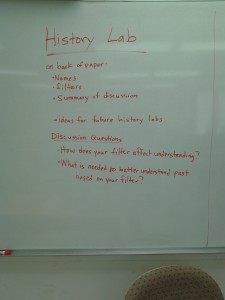 History Lab
on back of paper:
- Names
- Filters
- Summary of discussion
- ideas for future history labs
Discussion Questions
- How does your filter affect understanding?
- What is needed to better understand past
based on your filter?